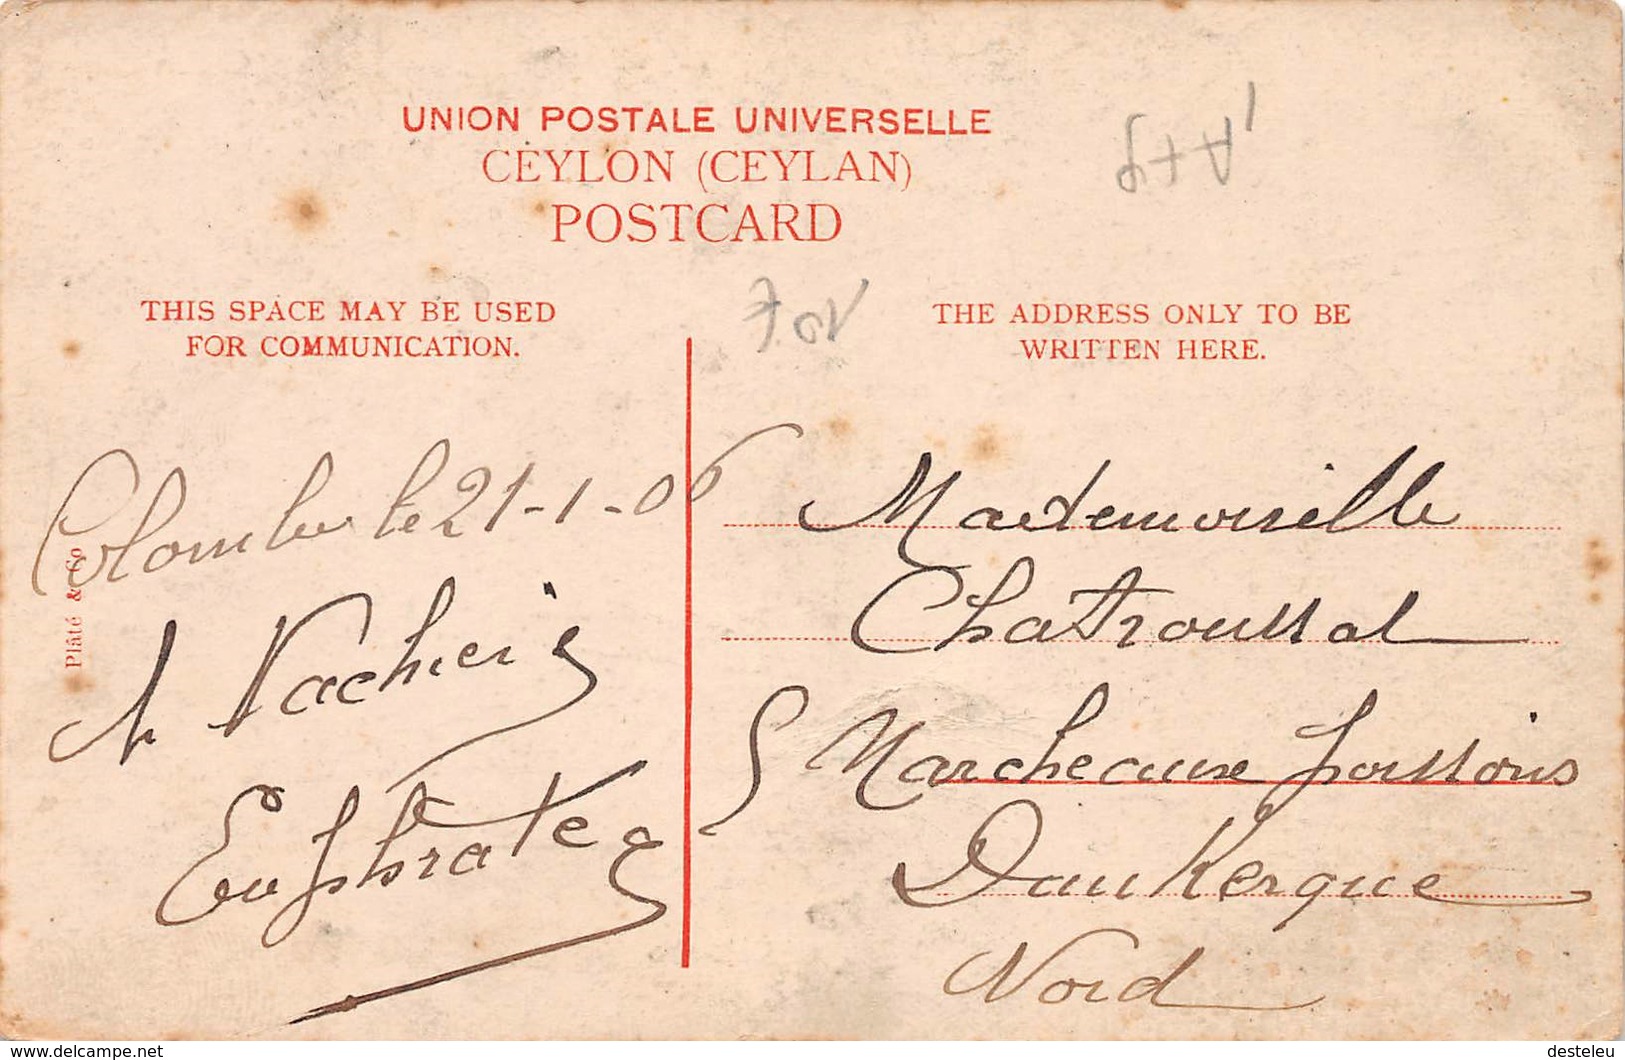 UNION POSTALE UNIVERSELLE
CEYLON (CEYLAN)
POSTCARD
THIS SPACE MAY BE USED
FOR COMMUNICATION.
THE ADDRESS ONLY TO BE
WRITTEN HERE.
10 €
Plâté & Co
Colombo le 21-1-06
Vacheris
Euphrate
Mademoiselle
Chatroussat
Marcheaux poissons
Dunkerque
Nord
www.delcampe.net
desteleu